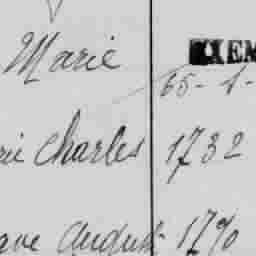 Marie
65-1-
rie Charles 1732
ave August 1790